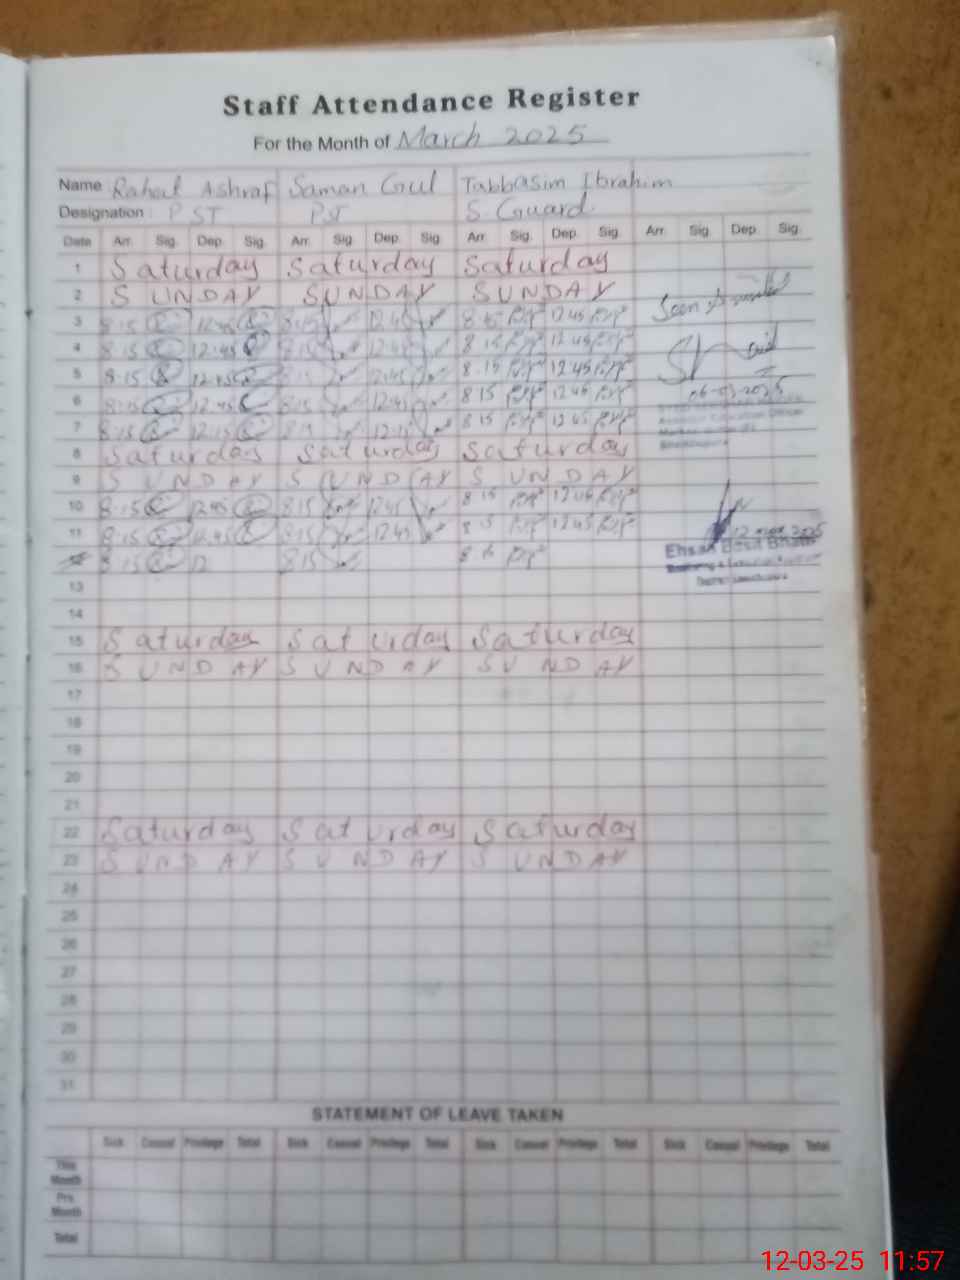 Staff Attendance Register
For the Month of March 2025
Name Rahat Ashraf Saman Gul Tabbasim Ibrahim
Designation PST PST S. Guard
Date Arr. Sig. Dep. Sig. Arr. Sig. Dep. Sig. Arr. Sig. Dep. Sig. Arr. Sig. Dep. Sig.
1 Saturday Saturday Saturday
2 SUNDAY SUNDAY SUNDAY
3 8:15 12:45 8:15 12:45 8 15 12 45
4 8:15 12:45 8:15 12:45 8 15 12 45
5 8:15 12:45 8:15 12:45 8 15 12 45
6 8:15 12:45 8:15 12:45 8 15 12 45 06-03-2025
7 8:15 12:15 8:15 12:15 8 15 12 45
8 Saturday Saturday Saturday
9 SUNDAY SUNDAY SUNDAY
10 8:15 12:45 8:15 12:45 8 15 12 45
11 8:15 12:45 8:15 12:45 8 15 12 45
12 8:15 12 8:15 8 15
Ehsan
13
14
15 Saturday Saturday Saturday
16 SUNDAY SUNDAY SUNDAY
17
18
19
20
21
22 Saturday Saturday Saturday
23 SUNDAY SUNDAY SUNDAY
24
25
26
27
28
29
30
31
STATEMENT OF LEAVE TAKEN
Sick Casual Privilege Total Sick Casual Privilege Total Sick Casual Privilege Total Sick Casual Privilege Total
This Month
Prs. Month
Total
12-03-25 11:57